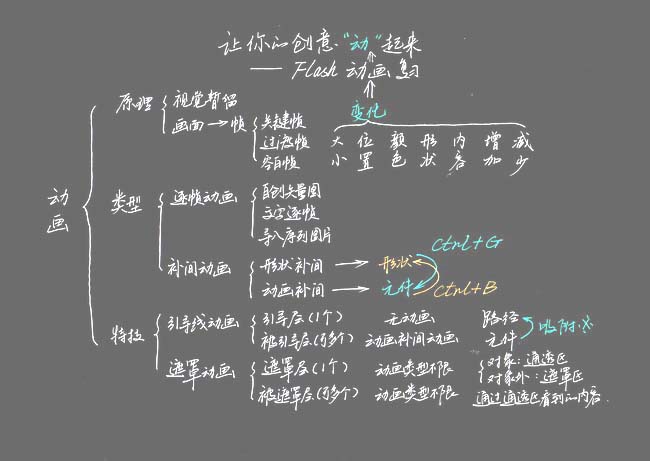 让你的创意"动"起来
—— Flash 动画复习
变化
大小 位置 颜色 形状 内容 增加 减少
动画
原理
视觉暂留
画面 → 帧
关键帧
过渡帧
空白帧
类型
逐帧动画
自创矢量图
文字逐帧
导入序列图片
补间动画
形状补间 → 形状
动画补间 → 元件
Ctrl+G
Ctrl+B
特技
引导线动画
引导层(1个) 无动画 路径
被引导层(可多个) 动画补间动画 元件
吸附
遮罩动画
遮罩层(1个) 动画类型不限
对象：通透区
对象外：遮罩区
被遮罩层(可多个) 动画类型不限 通过通透区看到的内容